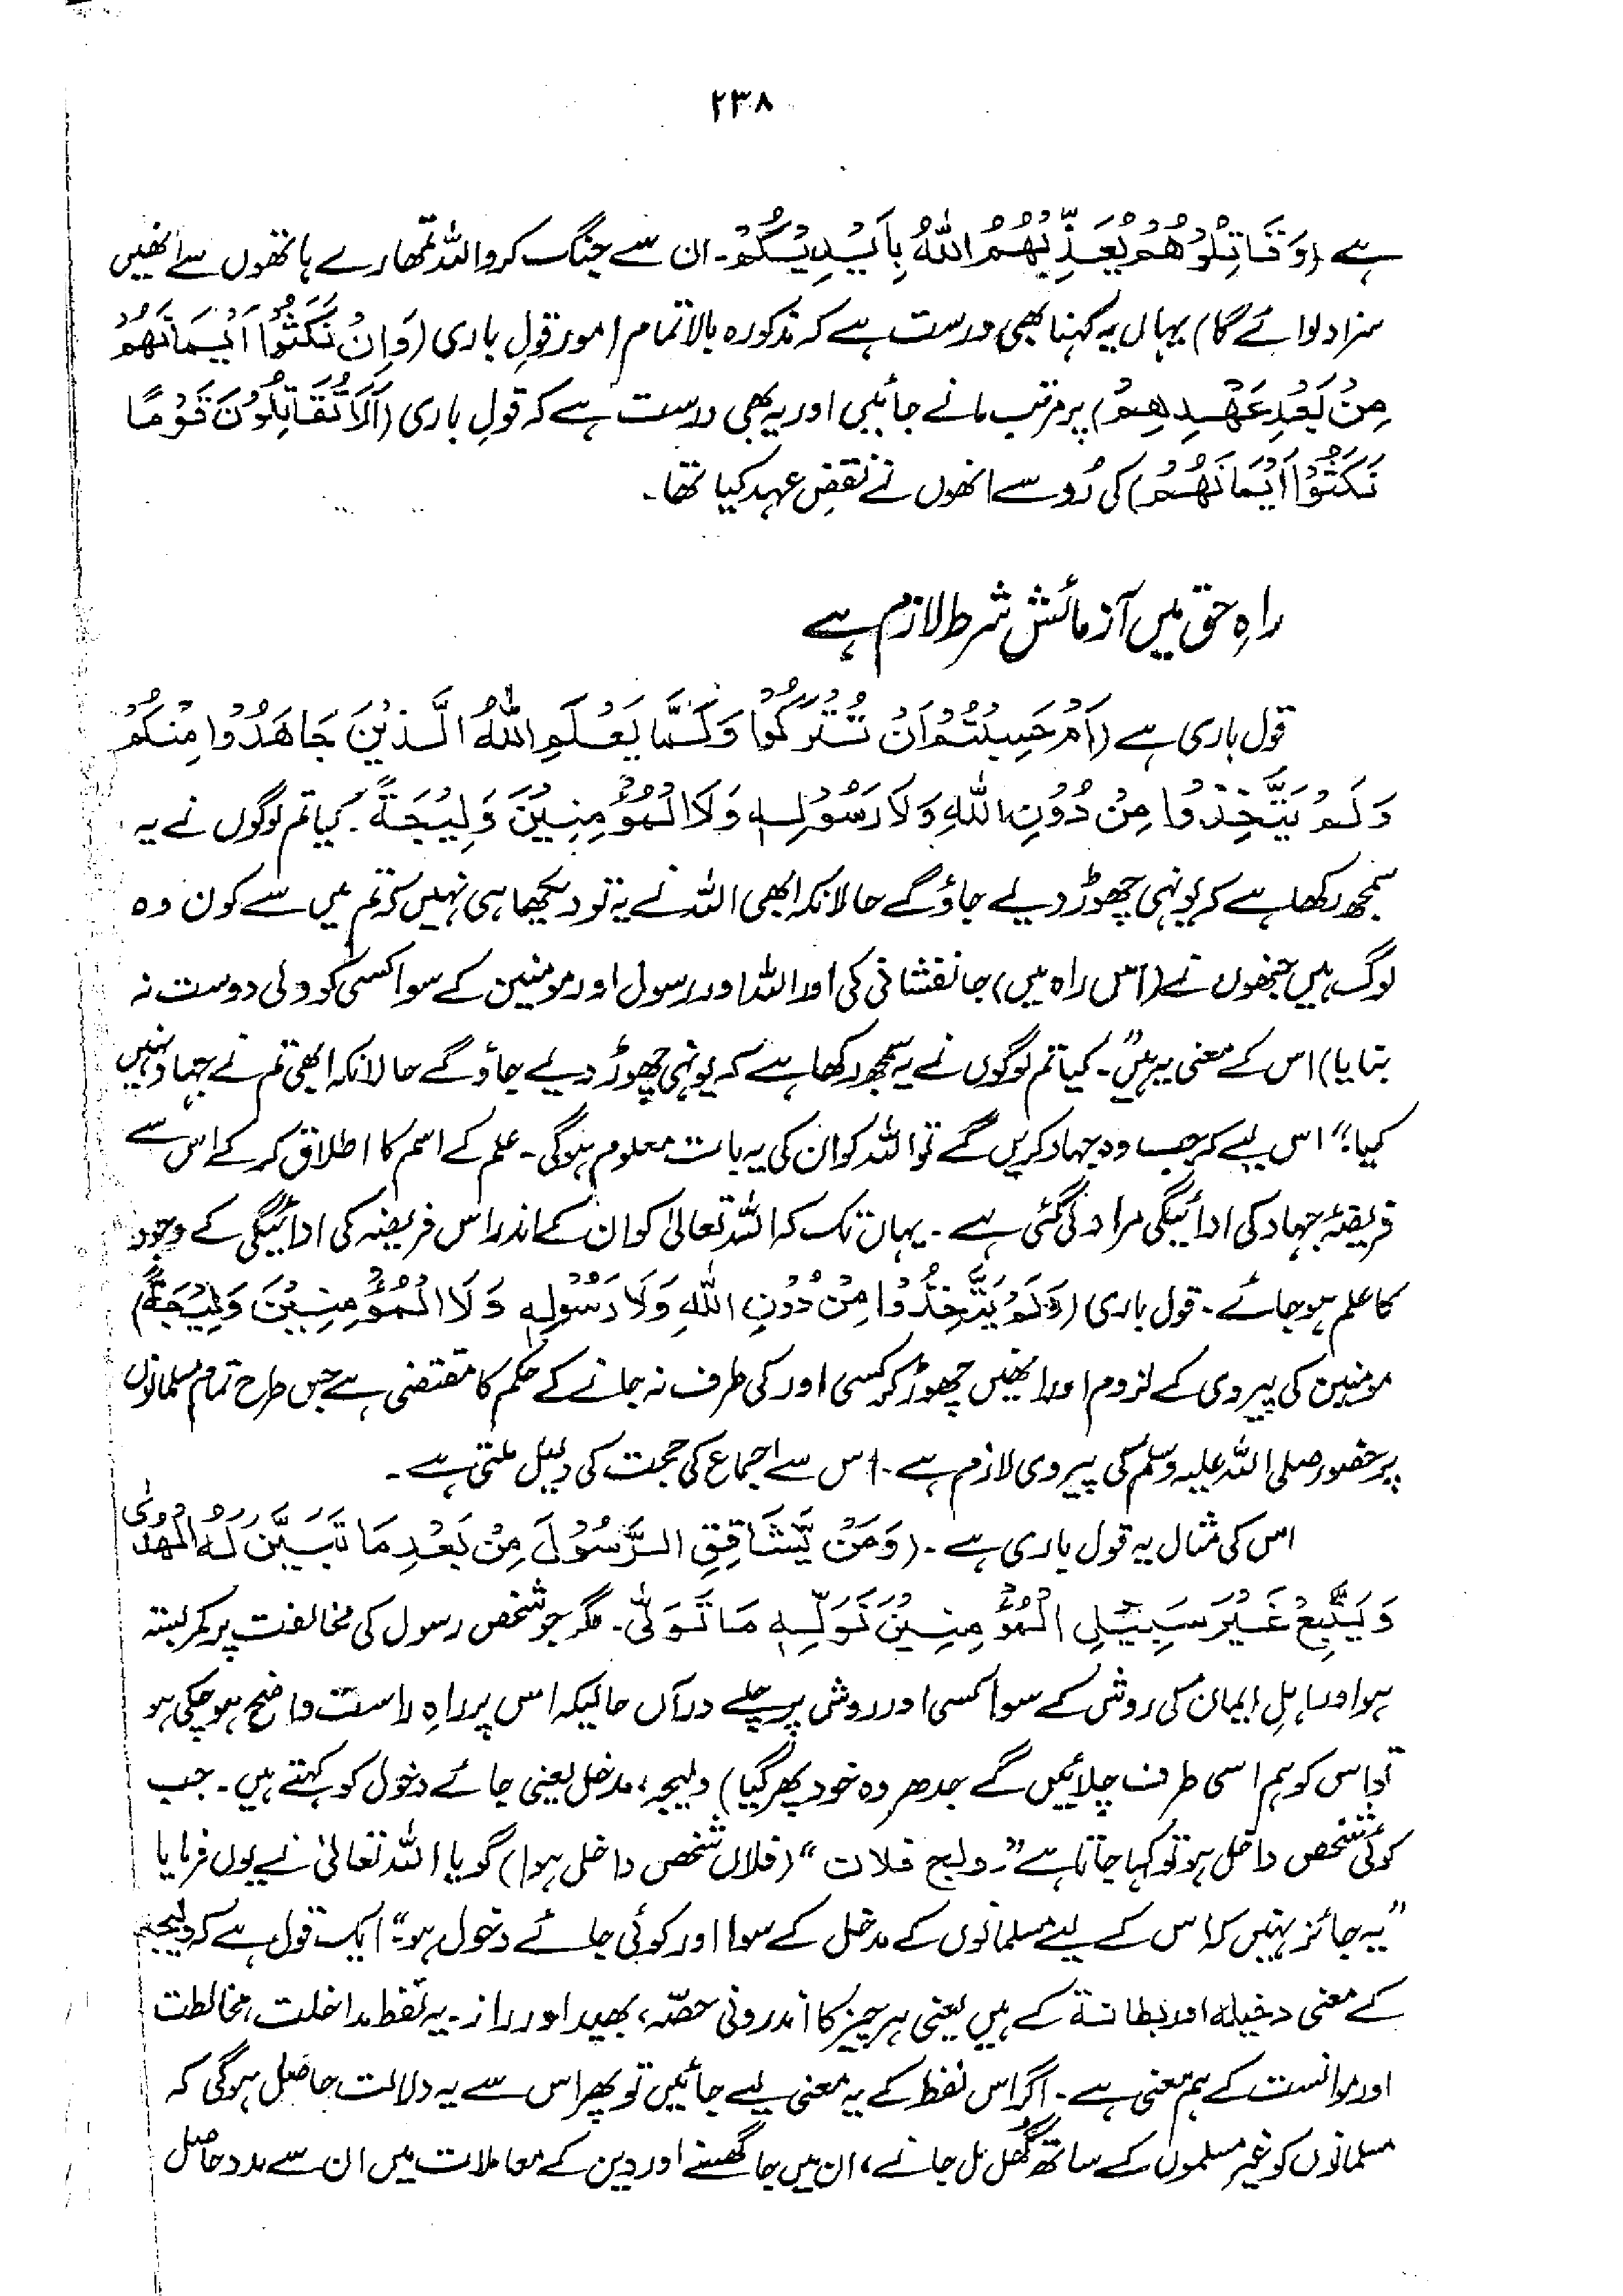 ۲۳۸
ہے (وَقَاتِلُوْهُمْ يُعَذِّبْهُمُ اللّٰهُ بِاَيْدِيْكُمْ۔ ان سے جنگ کرو اللہ تمھارے ہاتھوں سے انھیں
سزا دلوائے گا) یہاں یہ کہنا بھی درست ہے کہ مذکورہ بالا تمام امور قولِ باری (وَاِنْ نَّكَثُوْا اَيْمَانَهُمْ
مِنْ بَعْدِ عَهْدِهِمْ) پر مرتب مانے جائیں اور یہ بھی درست ہے کہ قولِ باری (اَلَا تُقَاتِلُوْنَ قَوْمًا
نَكَثُوْا اَيْمَانَهُمْ) کی رُو سے انھوں نے نقضِ عہد کیا تھا۔
راہِ حق میں آزمائش شرط لازم ہے
قول باری ہے (اَمْ حَسِبْتُمْ اَنْ تُتْرَكُوْا وَلَمَّا يَعْلَمِ اللّٰهُ الَّذِيْنَ جَاهَدُوْا مِنْكُمْ
وَلَمْ يَتَّخِذُوْا مِنْ دُوْنِ اللّٰهِ وَلَا رَسُوْلِهٖ وَلَا الْمُؤْمِنِيْنَ وَلِيْجَةً۔ کیا تم لوگوں نے یہ
سمجھ رکھا ہے کہ یونہی چھوڑ دیے جاؤ گے حالانکہ ابھی اللہ نے یہ تو دیکھا ہی نہیں کہ تم میں سے کون وہ
لوگ ہیں جنھوں نے (اس راہ میں) جانفشانی کی اور اللہ اور رسول اور مومنین کے سوا کسی کو دلی دوست نہ
بنایا) اس کے معنی یہ ہیں "۔ کیا تم لوگوں نے یہ سمجھ رکھا ہے کہ یونہی چھوڑ دیے جاؤ گے حالانکہ ابھی تم نے جہاد نہیں
کیا؟" اس لیے کہ جب وہ جہاد کریں گے تو اللہ کو ان کی یہ بات معلوم ہوگی۔ علم کے اسم کا اطلاق کر کے اس سے
فریضۂ جہاد کی ادائیگی مراد لی گئی ہے۔ یہاں تک کہ اللہ تعالیٰ کو ان کے اندر اس فریضہ کی ادائیگی کے وجود
کا علم ہو جائے۔ قول باری (وَلَمْ يَتَّخِذُوْا مِنْ دُوْنِ اللّٰهِ وَلَا رَسُوْلِهٖ وَلَا الْمُؤْمِنِيْنَ وَلِيْجَةً)
مومنین کی پیروی کے لزوم اور انھیں چھوڑ کر کسی اور کی طرف نہ جانے کے حکم کا مقتضی ہے جس طرح تمام مسلمانوں
پر حضور صلی اللہ علیہ وسلم کی پیروی لازم ہے۔ اس سے اجماع کی حجت کی دلیل ملتی ہے۔
اس کی مثال یہ قول باری ہے۔ (وَمَنْ يُّشَاقِقِ الرَّسُوْلَ مِنْ بَعْدِ مَا تَبَيَّنَ لَهُ الْهُدٰى
وَيَتَّبِعْ غَيْرَ سَبِيْلِ الْمُؤْمِنِيْنَ نُوَلِّهٖ مَا تَوَلّٰى۔ مگر جو شخص رسول کی مخالفت پر کمربستہ
ہو اور اہلِ ایمان کی روش کے سوا کسی اور روش پر چلے درآں حالیکہ اس پر راہِ راست واضح ہو چکی ہو
تو اس کو ہم اسی طرف چلائیں گے جدھر وہ خود پھر گیا) ولیجہ، مدخل یعنی جائے دخول کو کہتے ہیں۔ جب
کوئی شخص داخل ہو تو کہا جاتا ہے "۔ ولج فلان" (فلاں شخص داخل ہوا) گویا اللہ تعالیٰ نے یوں فرمایا
"یہ جائز نہیں کہ اس کے لیے مسلمانوں کے مدخل کے سوا اور کوئی جائے دخول ہو۔" ایک قول ہے کہ ولیجہ
کے معنی دخیلہ اور بطانۃ کے ہیں یعنی ہر چیز کا اندرونی حصّہ، بھید اور راز۔ یہ لفظ مداخلت، مخالطت
اور موانست کے ہم معنی ہے۔ اگر اس لفظ کے یہ معنی لیے جائیں تو پھر اس سے یہ دلالت حاصل ہوگی کہ
مسلمانوں کو غیر مسلموں کے ساتھ گھل مل جانے، ان میں جا گھسنے اور دین کے معاملات میں ان سے مدد حاصل